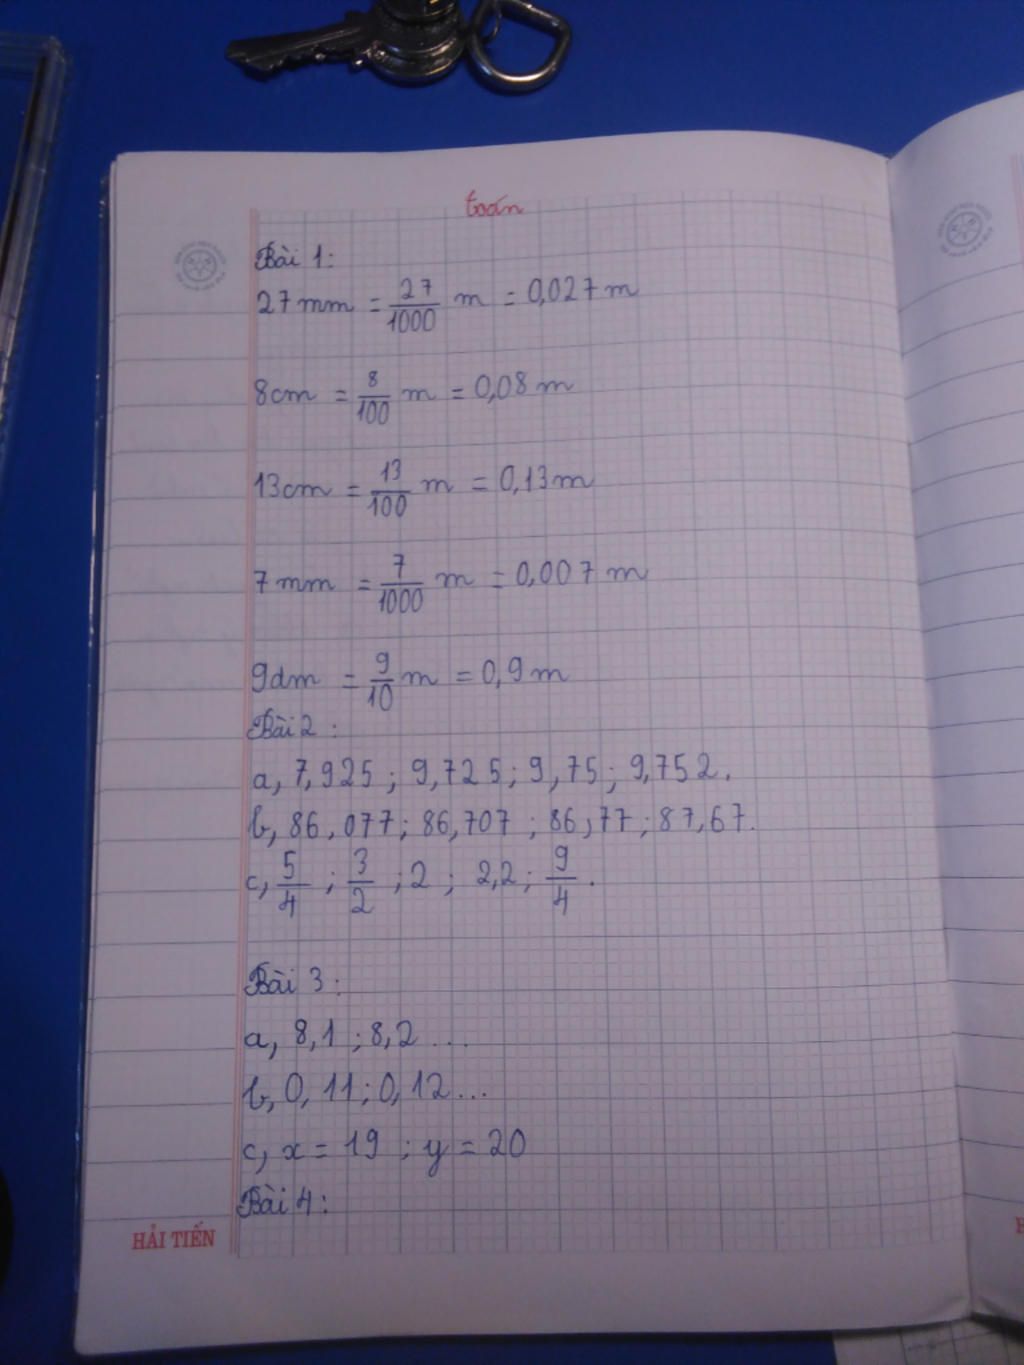 toán
Bài 1:
27mm = 27/1000 m = 0,027m
8cm = 8/100 m = 0,08m
13cm = 13/100 m = 0,13m
7mm = 7/1000 m = 0,007m
9dm = 9/10 m = 0,9m
Bài 2:
a, 7,925 ; 9,725 ; 9,75 ; 9,752.
b, 86,077 ; 86,707 ; 86,77 ; 87,67.
c, 5/4 ; 3/2 ; 2 ; 2,2 ; 9/4.
Bài 3:
a, 8,1 ; 8,2 ...
b, 0,11 ; 0,12 ...
c, x = 19 ; y = 20
Bài 4:
HẢI TIẾN